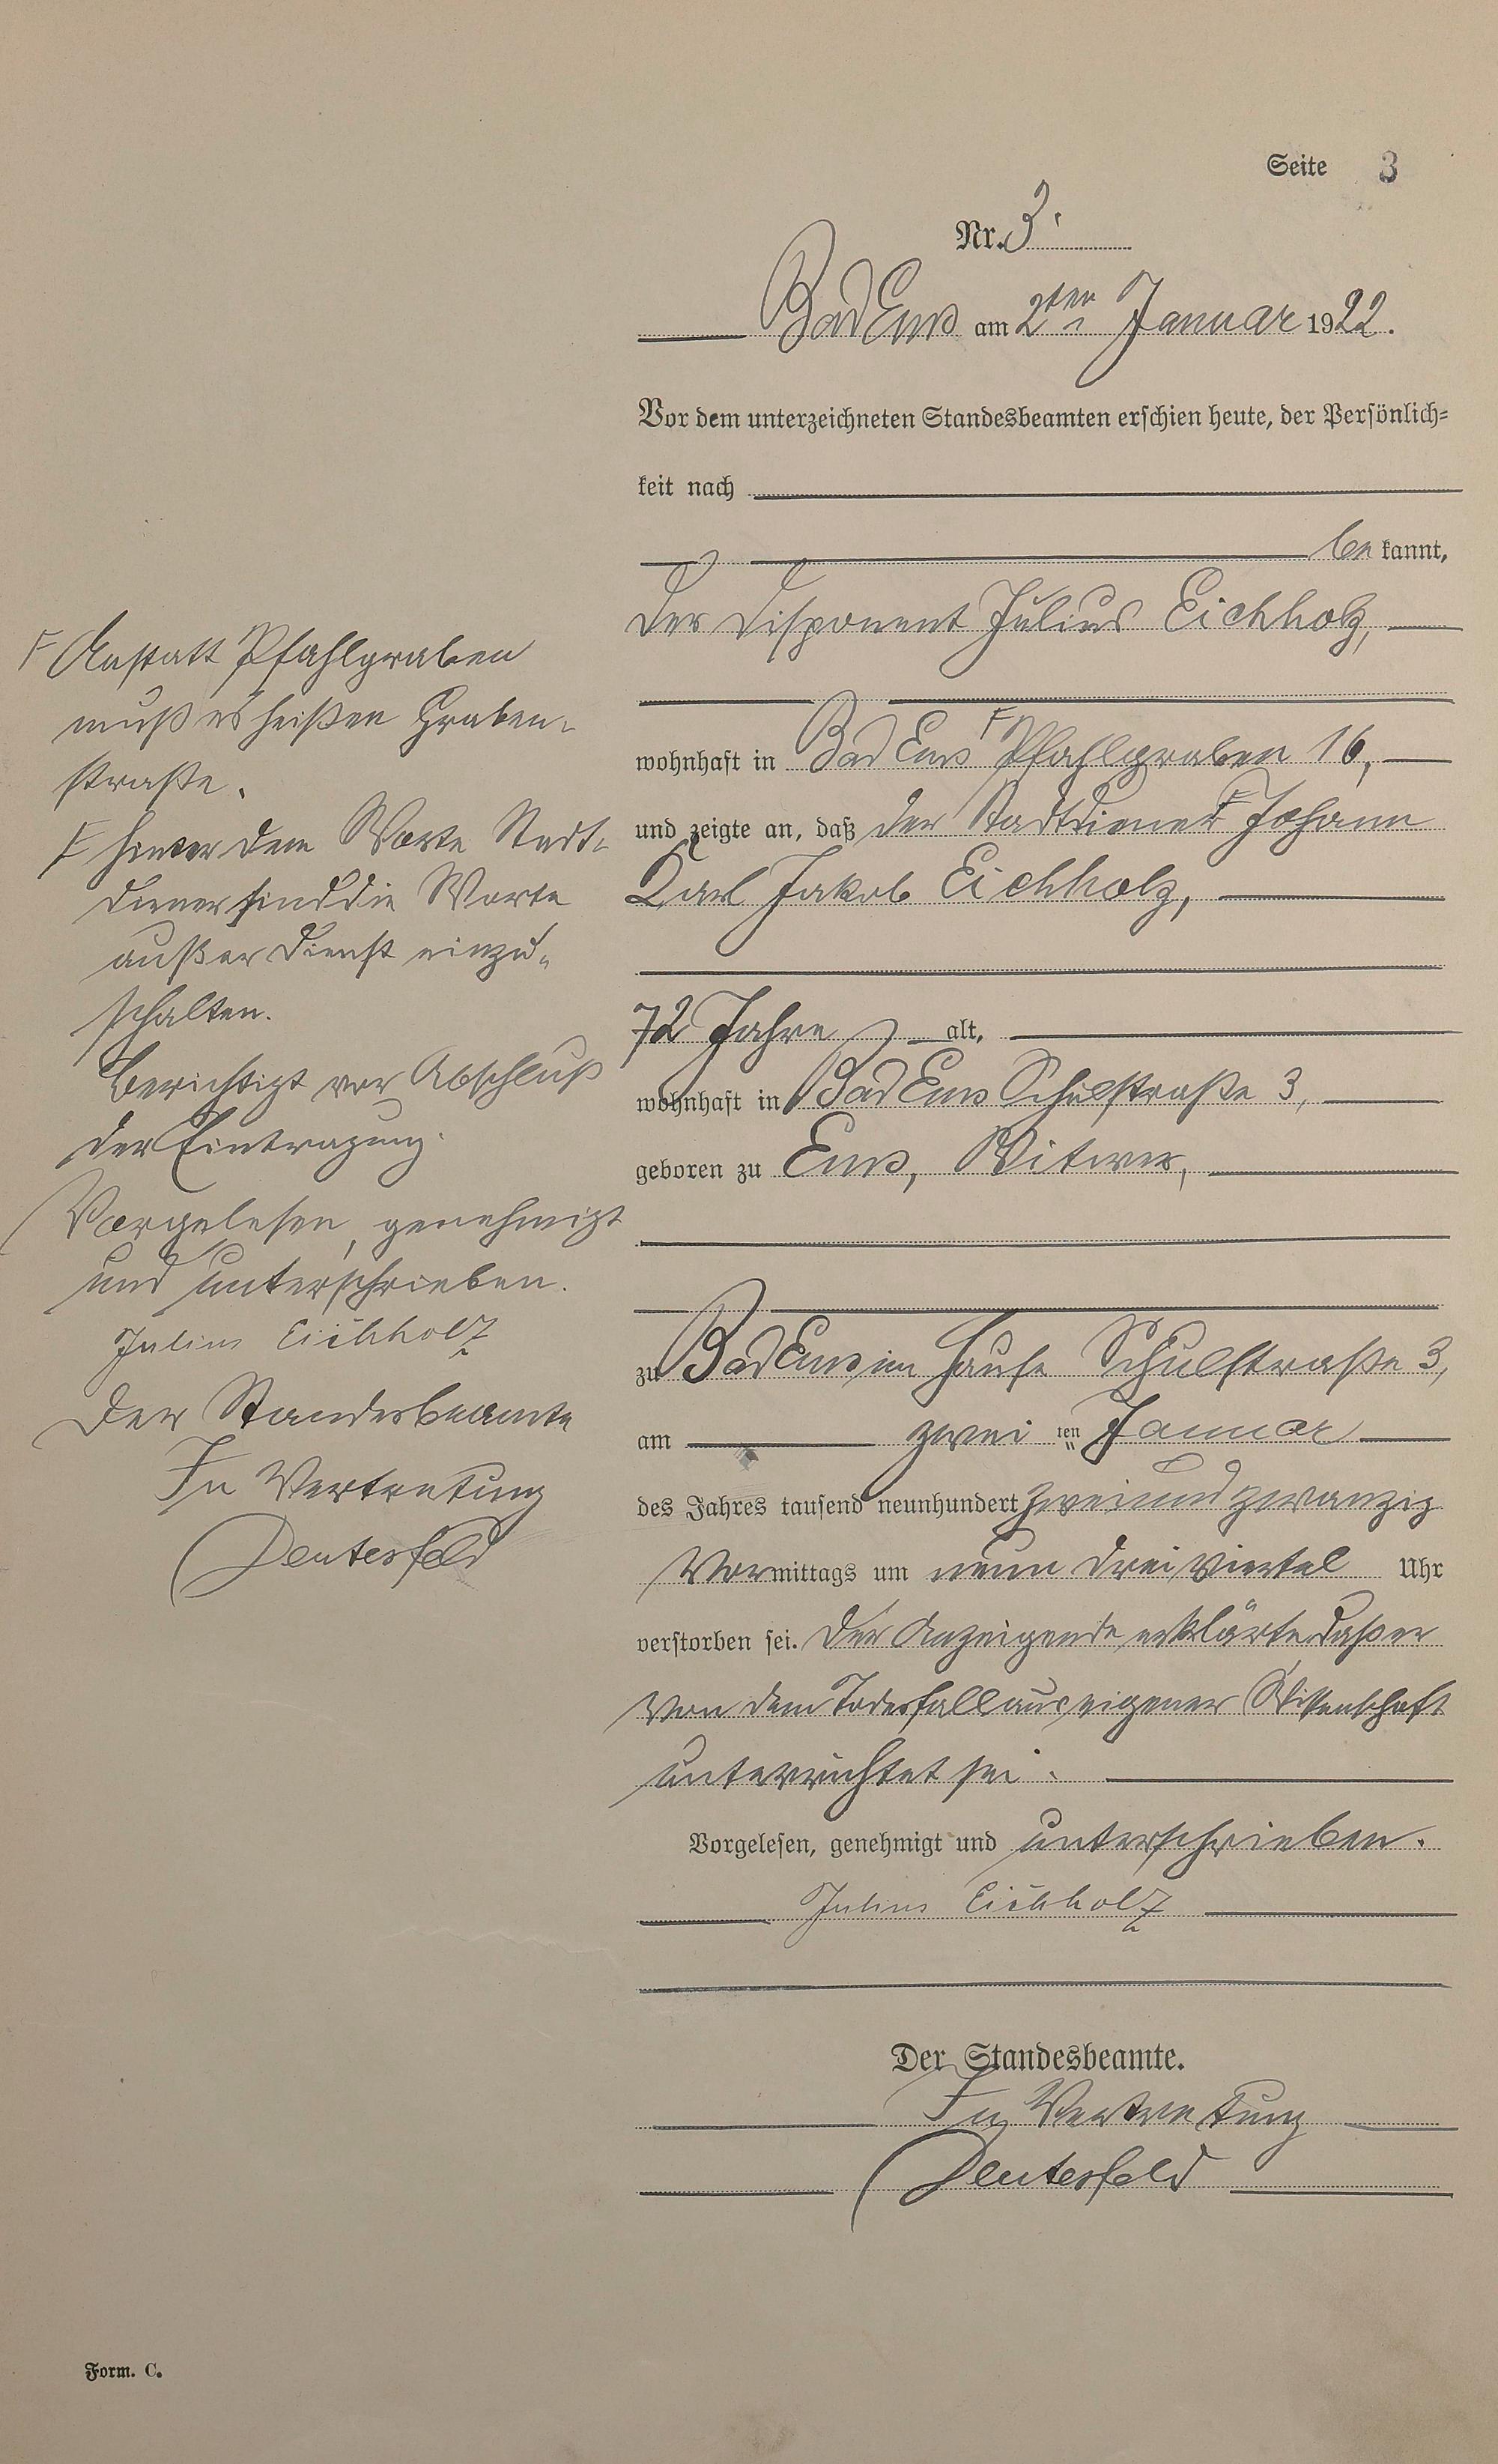 Seite 3
Nr. 3.
Bad Ems am 2ten Januar 1922.
Vor dem unterzeichneten Standesbeamten erschien heute, der Persönlich=
keit nach
be kannt,
der Disponent Julius Eichholz,
wohnhaft in Bad Ems F Pfahlgraben 16,
und zeigte an, daß der Stadtdiener F Johann
Karl Jakob Eichholz,
72 Jahre alt,
wohnhaft in Bad Ems Schulstraße 3,
geboren zu Ems, Witwer,
zu Bad Ems im Hause Schulstraße 3,
am zwei ten Januar
des Jahres tausend neunhundert zweiundzwanzig
Vormittags um neun dreiviertel Uhr
verstorben sei. Der Anzeigende erklärte daß er
von dem Todesfall aus eigener Wissenschaft
unterrichtet sei.
Vorgelesen, genehmigt und unterschrieben.
Julius Eichholz
Der Standesbeamte.
In Vertretung
Deutesfeld
F Anstatt Pfahlgraben
muß es heißen Graben-
straße.
F hinter dem Worte Stadt-
diener sind die Worte
außer Dienst einzu-
schalten.
Berichtigt vor Abschluß
der Eintragung.
Vorgelesen, genehmigt
und unterschrieben.
Julius Eichholz
Der Standesbeamte
In Vertretung
Deutesfeld
Form. C.